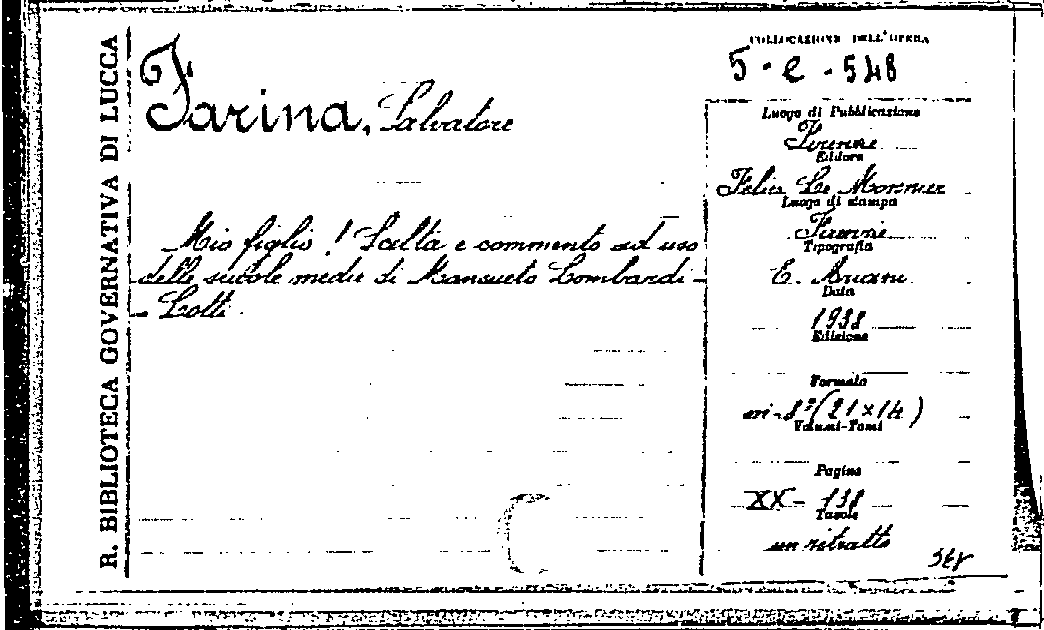 R. BIBLIOTECA GOVERNATIVA DI LUCCA
Farina, Salvatore
Mio figlio! Scelta e commento ad uso
delle scuole medie di Mansueto Lombardi-
- Lotti.
COLLOCAZIONE DELL'OPERA
5 - e - 548
Luogo di Pubblicazione
Firenze
Editore
Felice Le Monnier
Luogo di stampa
Firenze
Tipografia
E. Ariani
Data
1938
Edizione
Formato
in-8° (21×14)
Volumi-Tomi
Pagine
XX - 138
Tavole
un ritratto